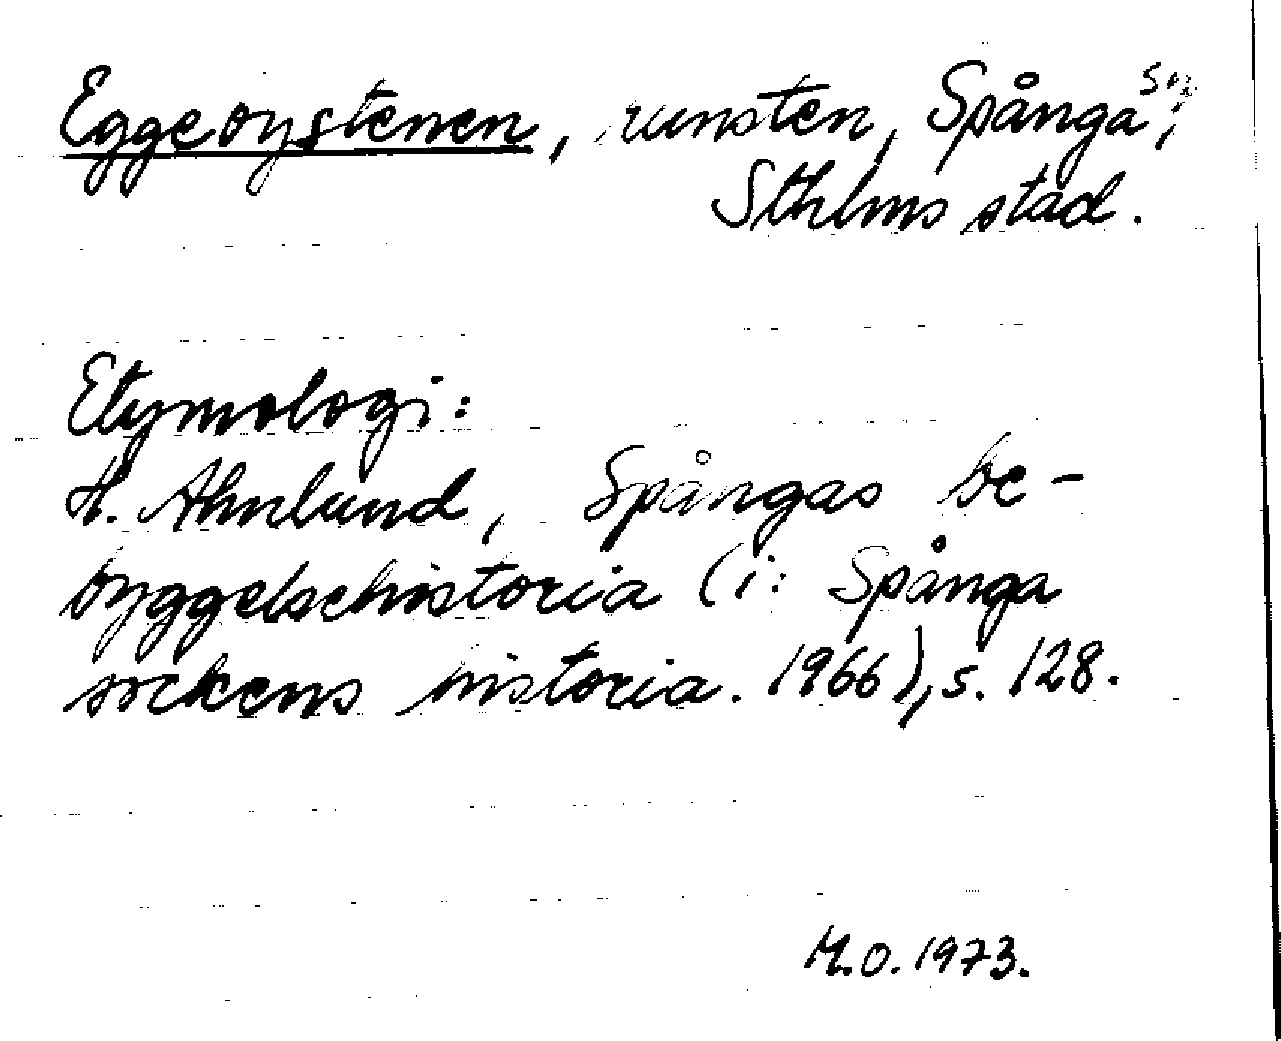 Eggebystenen, runsten, Spånga sn,
Sthlms stad.
Etymologi:
H. Ahnlund, Spångas be-
byggelsehistoria (i: Spånga
sockens historia. 1966), s. 128.
M.O. 1973.